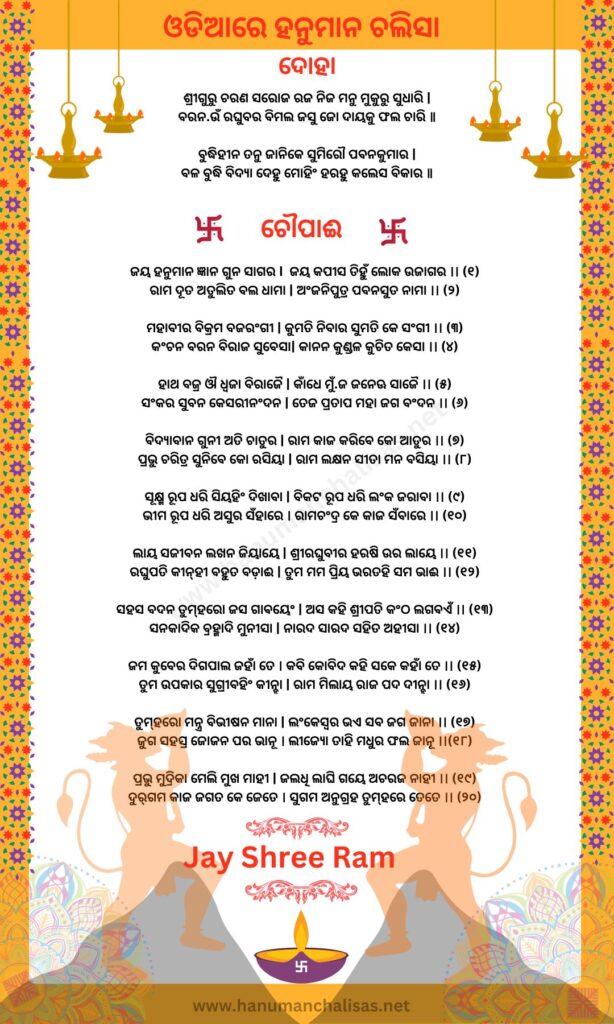 ଓଡିଆରେ ହନୁମାନ ଚଲିସା
ଦୋହା
ଶ୍ରୀଗୁରୁ ଚରଣ ସରୋଜ ରଜ ନିଜ ମନୁ ମୁକୁରୁ ସୁଧାରି |
ବରନ.ଉଁ ରଘୁବର ବିମଲ ଜସୁ ଜୋ ଦାୟକୁ ଫଲ ଚାରି ॥
ବୁଦ୍ଧିହୀନ ତନୁ ଜାନିକେ ସୁମିରୌ ପବନକୁମାର |
ବଳ ବୁଦ୍ଧି ବିଦ୍ୟା ଦେହୁ ମୋହିଂ ହରହୁ କଲେସ ବିକାର ॥
卐 ଚୌପାଈ 卐
ଜୟ ହନୁମାନ ଜ୍ଞାନ ଗୁନ ସାଗର । ଜୟ କପୀସ ତିହୁଁ ଲୋକ ଉଜାଗର ।। (୧)
ରାମ ଦୂତ ଅତୁଲିତ ବଲ ଧାମା | ଅଂଜନିପୁତ୍ର ପବନସୁତ ନାମା ।। (୨)
ମହାବୀର ବିକ୍ରମ ବଜରଂଗୀ | କୁମତି ନିବାର ସୁମତି କେ ସଂଗୀ ।। (୩)
କଂଚନ ବରନ ବିରାଜ ସୁବେସା| କାନନ କୁଣ୍ଡଳ କୁଚିତ କେସା ।। (୪)
ହାଥ ବଜ୍ର ଔ ଧ୍ଵଜା ବିରାଜୈ | କାଁଧେ ମୁଁ.ଜ ଜନେଊ ସାଜୈ ।। (୫)
ସଂକର ସୁବନ କେସରୀନଂଦନ | ତେଜ ପ୍ରତାପ ମହା ଜଗ ବଂଦନ ।। (୬)
ବିଦ୍ୟାବାନ ଗୁନୀ ଅତି ଚାତୁର | ରାମ କାଜ କରିବେ କୋ ଆତୁର ।। (୭)
ପ୍ରଭୁ ଚରିତ୍ର ସୁନିବେ କୋ ରସିୟା | ରାମ ଲକ୍ଷନ ସୀତା ମନ ବସିୟା ।। (୮)
ସୂକ୍ଷ୍ମ ରୂପ ଧରି ସିୟହିଂ ଦିଖାବା | ବିକଟ ରୂପ ଧରି ଲଂକ ଜରାବା ।। (୯)
ଭୀମ ରୂପ ଧରି ଅସୁର ସଁହାରେ । ରାମଚଂଦ୍ର କେ କାଜ ସଁବାରେ ।। (୧୦)
ଲାୟ ସଜୀବନ ଲଖନ ଜିୟାୟେ | ଶ୍ରୀରଘୁବୀର ହରଷି ଉର ଲାୟେ ।। (୧୧)
ରଘୁପତି କୀନ୍‌ହୀ ବହୁତ ବଡ଼ାଈ | ତୁମ ମମ ପ୍ରିୟ ଭରତହି ସମ ଭାଈ ।। (୧୨)
ସହସ ବଦନ ତୁମ୍‌ହରୋ ଜସ ଗାବୟେଂ | ଅସ କହି ଶ୍ରୀପତି କଂଠ ଲଗବଏଁ ।। (୧୩)
ସନକାଦିକ ବ୍ରହ୍ମାଦି ମୁନୀସା | ନାରଦ ସାରଦ ସହିତ ଅହୀସା ।। (୧୪)
ଜମ କୁବେର ଦିଗପାଲ ଜହାଁ ତେ । କବି କୋବିଦ କହି ସକେ କହାଁ ତେ ।। (୧୫)
ତୁମ ଉପକାର ସୁଗ୍ରୀବହିଂ କୀହ୍ନା | ରାମ ମିଲାୟ ରାଜ ପଦ ଦୀହ୍ନା ।। (୧୬)
ତୁମ୍‌ହରୋ ମନ୍ତ୍ର ବିଭୀଷନ ମାନା | ଲଂକେସ୍ଵର ଭଏ ସବ ଜଗ ଜାନା ।। (୧୭)
ଜୁଗ ସହସ୍ର ଜୋଜନ ପର ଭାନୂ । ଲୀଲ୍ୟୋ ତାହି ମଧୁର ଫଲ ଜାନୂ ।।(୧୮)
ପ୍ରଭୁ ମୁଦ୍ରିକା ମେଲି ମୁଖ ମାହୀ | ଜଲଧି ଲାଘି ଗୟେ ଅଚରଜ ନାହୀ ।। (୧୯)
ଦୁର୍‌ଗମ କାଜ ଜଗତ କେ ଜେତେ । ସୁଗମ ଅନୁଗ୍ରହ ତୁମ୍‌ହରେ ତେତେ ।। (୨୦)
Jay Shree Ram
www.hanumanchalisas.net
www.hanumanchalisas.net